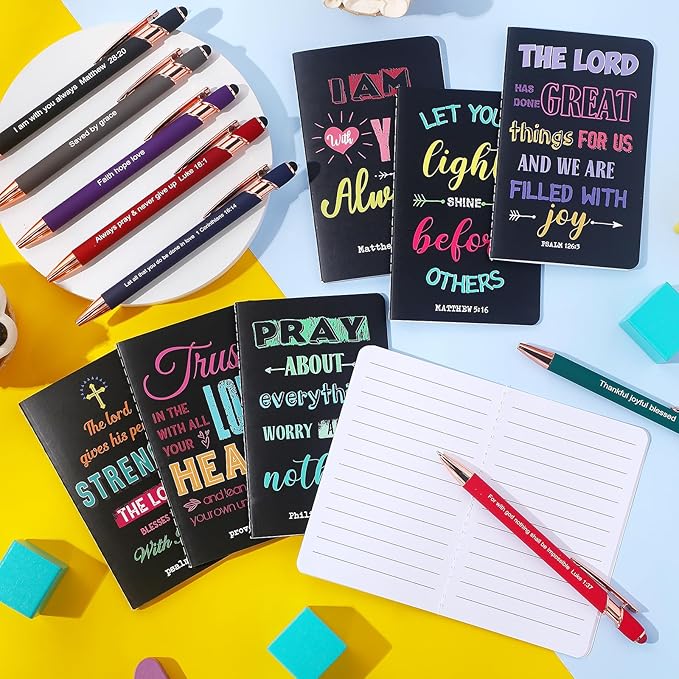 I am with you always Matthew 28:20
Saved by grace
Faith hope love
Always pray & never give up Luke 18:1
Let all that you do be done in love 1 Corinthians 16:14
I AM
With
Matthew
LET YOUR
light
SHINE
before
OTHERS
MATTHEW 5:16
THE LORD
HAS
DONE GREAT
things FOR US
AND WE ARE
FILLED WITH
joy
PSALM 126:3
The lord
gives his
STRENGTH
THE LORD
BLESSES
With
psalm
Trust
IN THE
WITH ALL
YOUR
HEART
and lean
your own
PRAY
ABOUT
everything
WORRY
Thankful joyful blessed
For with god nothing shall be impossible Luke 1:37